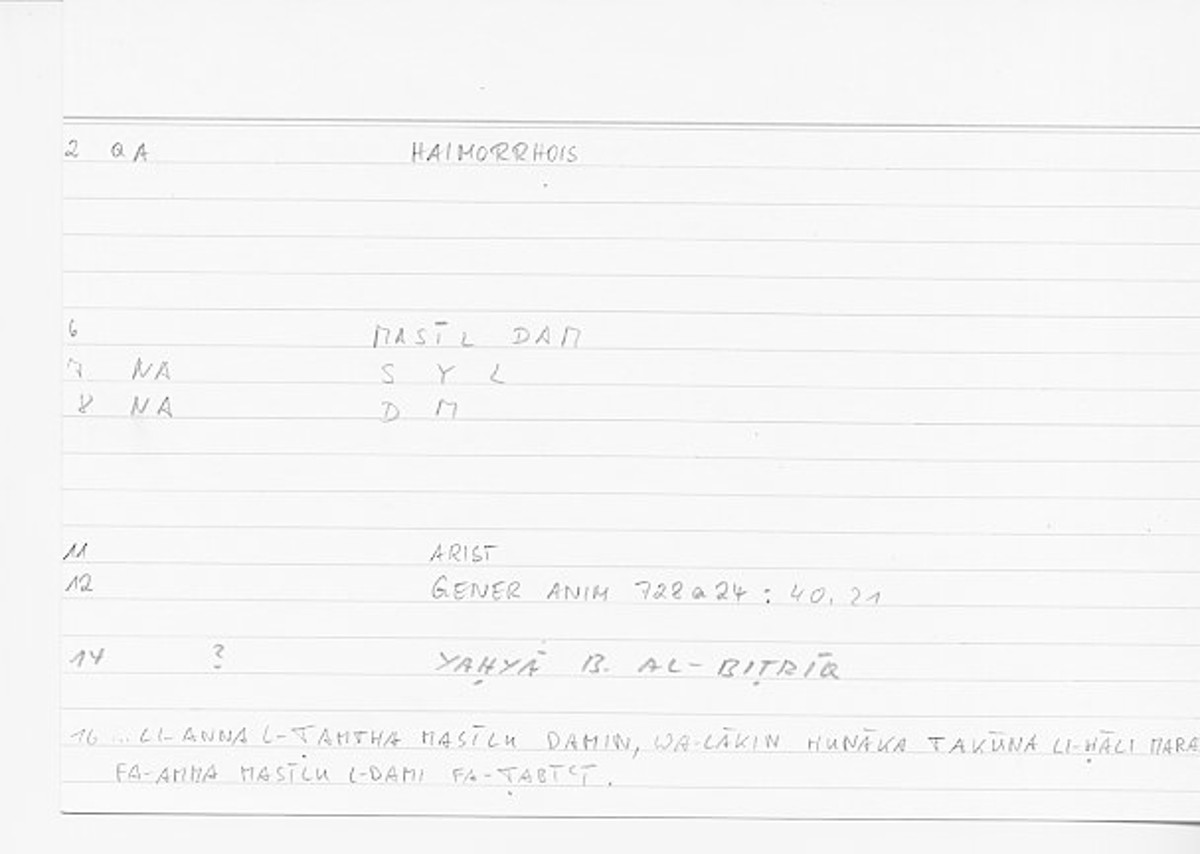 2 QA HAIMORRHOIS
6 MASĪL DAM
7 NA S Y L
8 NA D M
11 ARIST
12 GENER ANIM 728a24 : 40.21
14 ? YAḤYĀ B. AL-BIṬRĪQ
16 ... LI-ANNA L-ṬAMTHA MASĪLU DAMIN, WA-LĀKIN HUNĀKA TAKŪNA LI-ḤĀLI MARA
FA-AMMA MASĪLU L-DAMI FA-ṬABĪʿĪ.